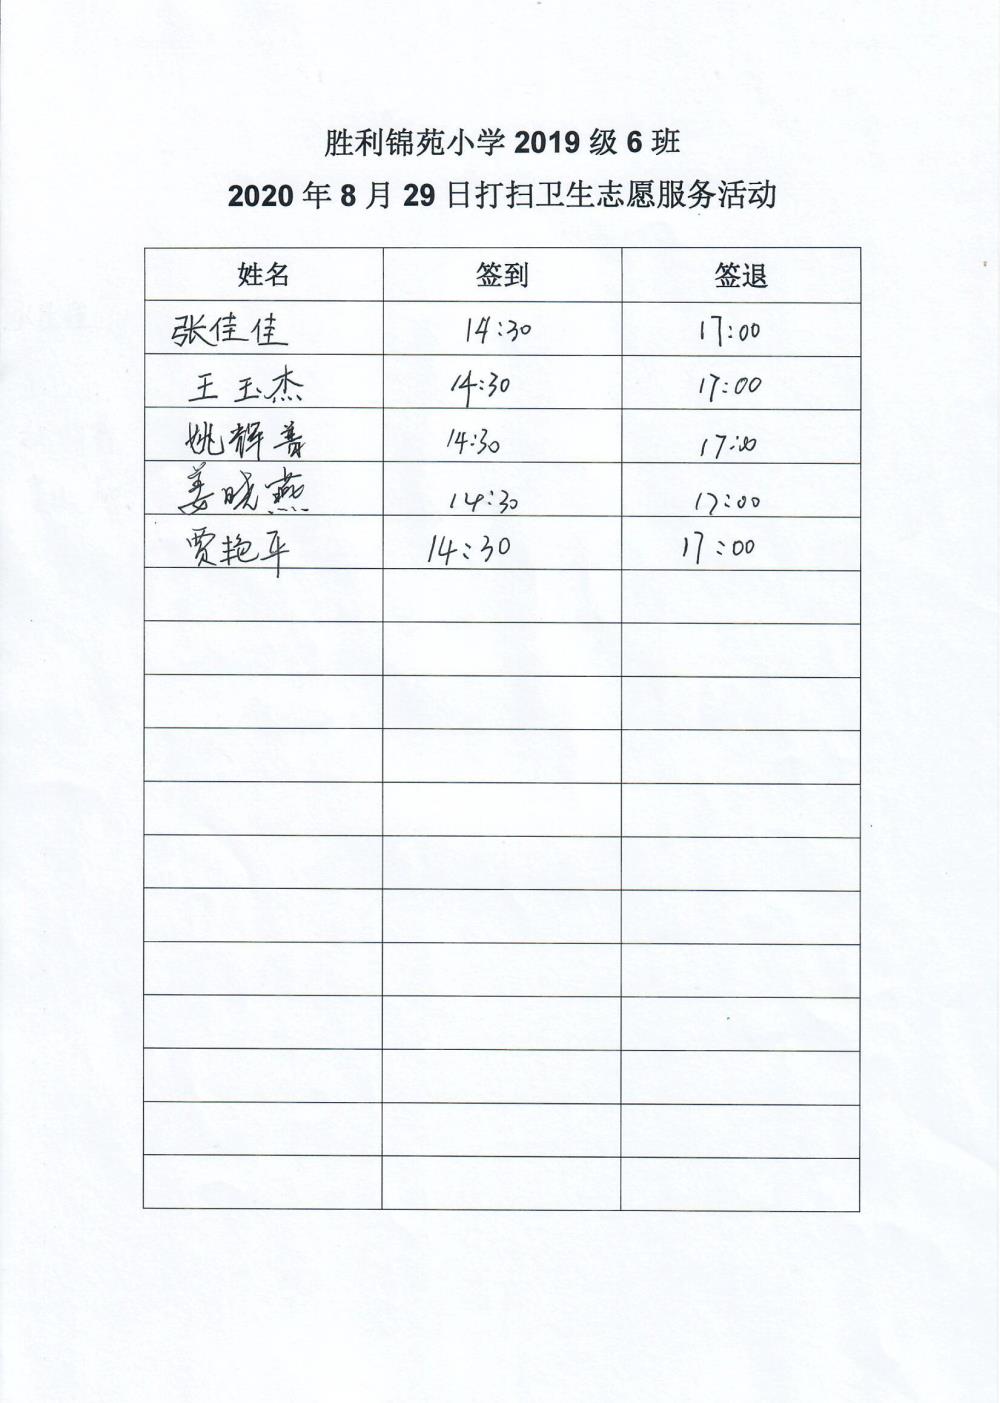 胜利锦苑小学 2019 级 6 班
2020 年 8 月 29 日打扫卫生志愿服务活动
姓名 签到 签退
张佳佳 14:30 17:00
王玉杰 14:30 17:00
姚辉善 14:30 17:00
姜晓燕 14:30 17:00
贾艳平 14:30 17:00